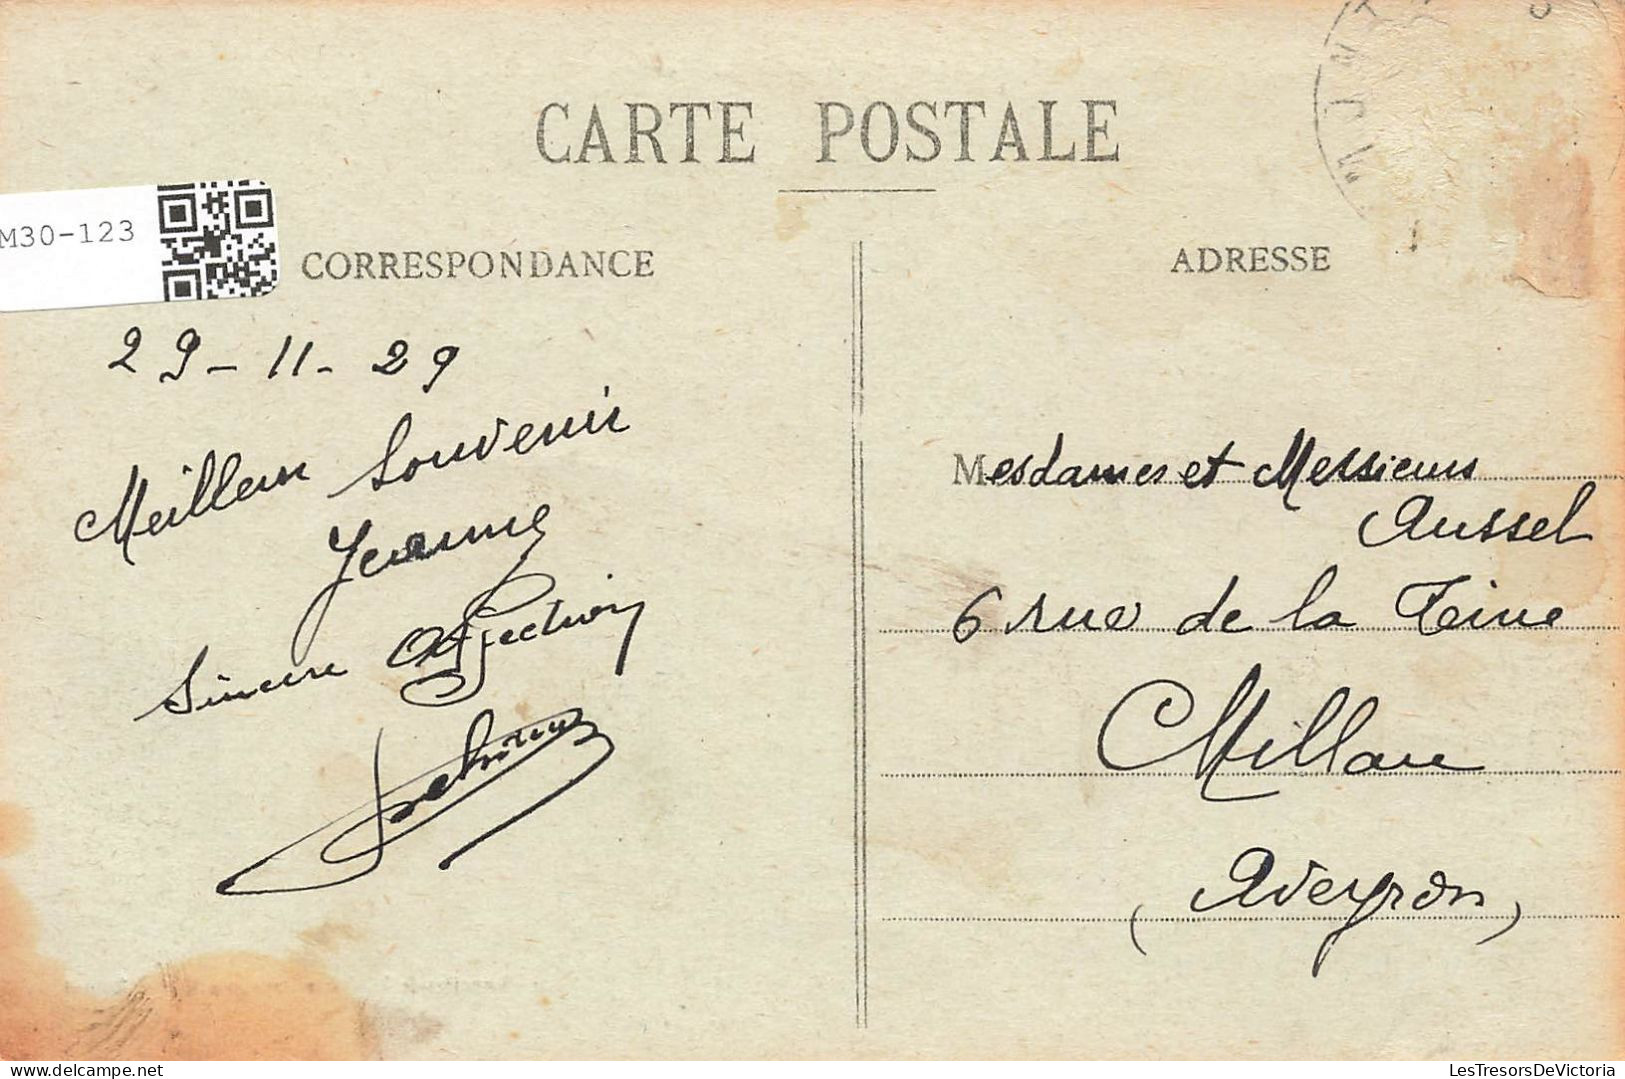 CARTE POSTALE
M30-123
CORRESPONDANCE
29-11-29
Meilleur Souvenir
Jeanne
Sincère Affection
ADRESSE
Mesdames et Messieurs
Aussel
6 rue de la Teine
Millau
(Aveyron)
LesTresorsDeVictoria